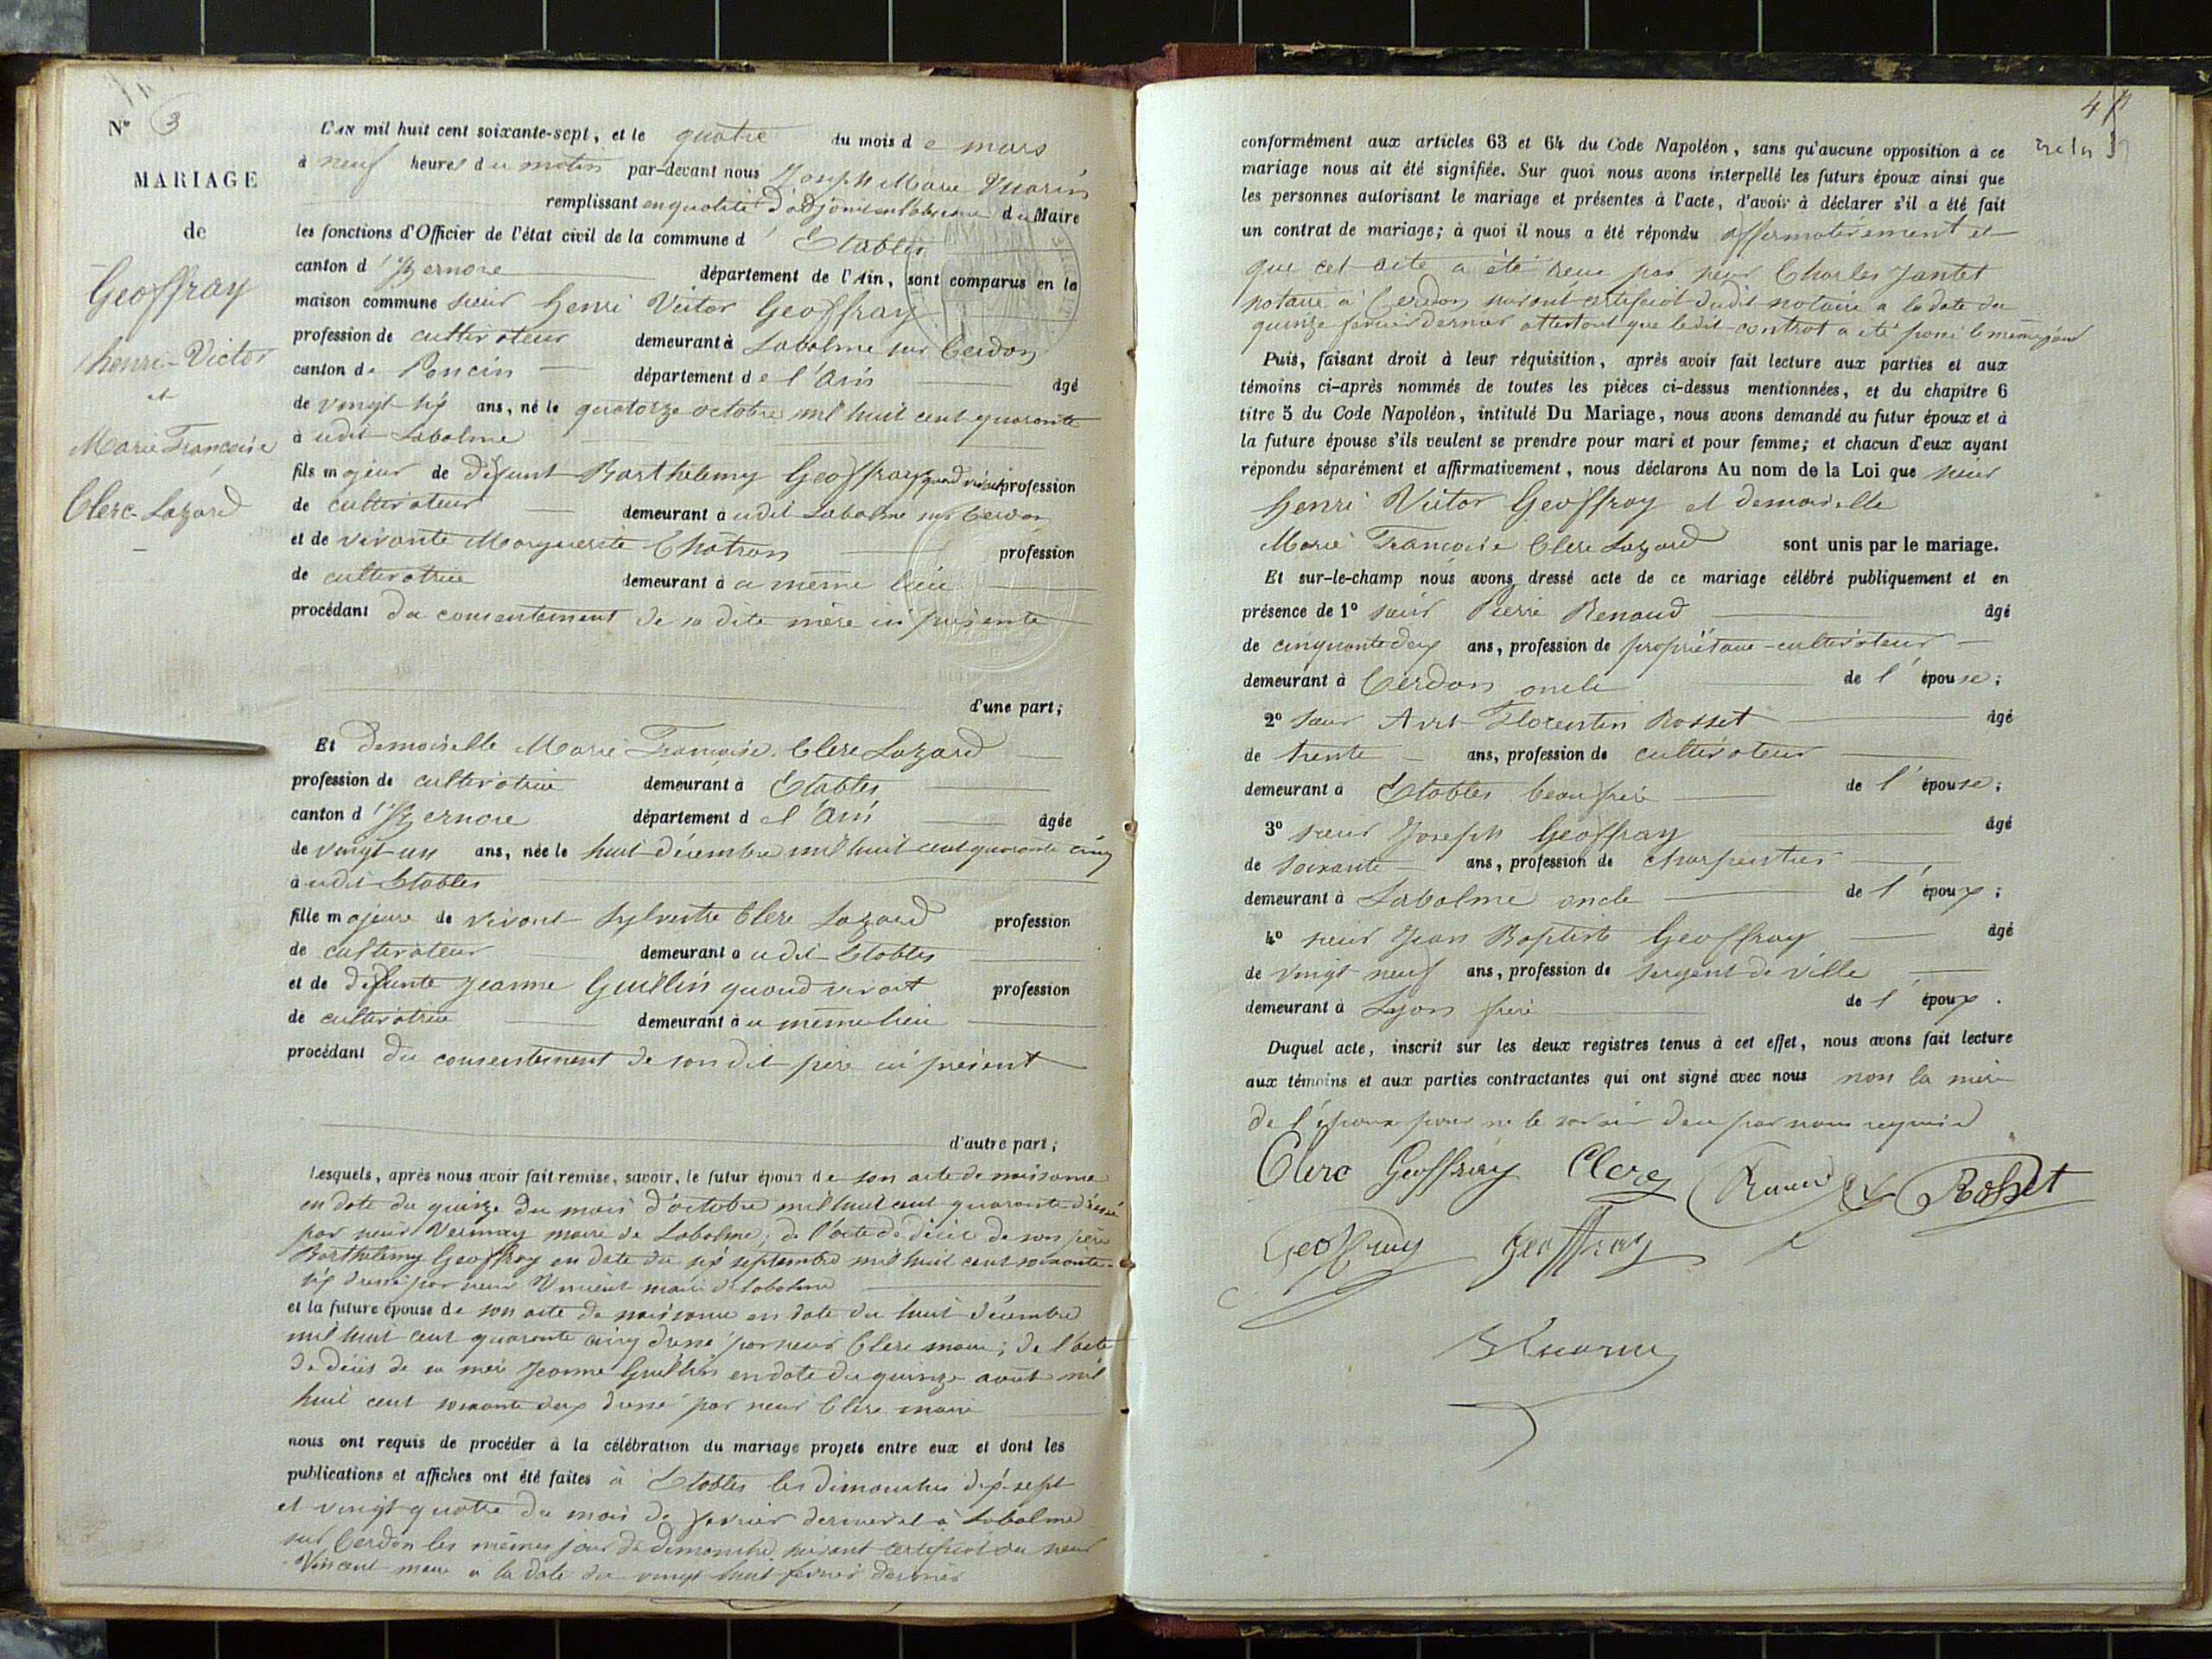 N° 3
MARIAGE
de
Geoffray
henri-Victor
et
Marie Françoise
Clerc-Lazard
L'AN mil huit cent soixante-sept, et le quatre du mois de mars
à neuf heures du matin par-devant nous Joseph Marie
remplissant en qualité d'adjoint en l'absence du Maire
les fonctions d'Officier de l'état civil de la commune d'Etables
canton d'Izernore département de l'Ain, sont comparus en la
maison commune sieur henri Victor Geoffray
profession de cultivateur demeurant à Labalme sur Cerdon
canton de Poncin département de l'Ain âgé
de vingt six ans, né le quatorze octobre mil huit cent quarante
audit Labalme
fils majeur de défunt Barthelemy Geoffray quand vivait profession
de cultivateur demeurant audit Labalme sur Cerdon
et de vivante Marguerite Chatron profession
de cultivatrice demeurant à ce même lieu
procédant du consentement de sa dite mère ici présente
d'une part;
Et demoiselle Marie Françoise Clerc Lazard
profession de cultivatrice demeurant à Etables
canton d'Izernore département de l'Ain âgée
de vingt un ans, née le huit décembre mil huit cent quarante cinq
audit Etables
fille majeure de vivant Sylvestre Clerc Lazard profession
de cultivateur demeurant audit Etables
et de défunte Jeanne Guillin quand vivait profession
de cultivatrice demeurant au même lieu
procédant du consentement de son dit père ici présent
d'autre part;
Lesquels, après nous avoir fait remise, savoir, le futur époux de son acte de naissance
en date du quinze du mois d'octobre mil huit cent quarante dressé
par sieur maire de Labalme, de l'acte de décès de son père
Barthelemy Geoffray en date du six septembre mil huit cent soixante-
six dressé par sieur Vincent maire de Labalme
et la future épouse de son acte de naissance en date du huit décembre
mil huit cent quarante cinq dressé par sieur Clerc maire; de l'acte
de décès de sa mère Jeanne Guillin en date du quinze août mil
huit cent soixante deux dressé par sieur Clerc maire
nous ont requis de procéder à la célébration du mariage projeté entre eux et dont les
publications et affiches ont été faites à Etables les dimanches dix-sept
et vingt quatre du mois de février dernier et à Labalme
sur Cerdon les mêmes jour de dimanche suivant certificat du sieur
Vincent maire a la date du vingt huit février dernier
4
conformément aux articles 63 et 64 du Code Napoléon, sans qu'aucune opposition à ce
mariage nous ait été signifiée. Sur quoi nous avons interpellé les futurs époux ainsi que
les personnes autorisant le mariage et présentes à l'acte, d'avoir à déclarer s'il a été fait
un contrat de mariage; à quoi il nous a été répondu affirmativement et
que cet acte a été reçu par sieur Charles Jantet
notaire à Cerdon suivant certificat dudit notaire a la date du
quinze février dernier attestant que ledit contrat a été passé le même jour
Puis, faisant droit à leur réquisition, après avoir fait lecture aux parties et aux
témoins ci-après nommés de toutes les pièces ci-dessus mentionnées, et du chapitre 6
titre 5 du Code Napoléon, intitulé Du Mariage, nous avons demandé au futur époux et à
la future épouse s'ils veulent se prendre pour mari et pour femme; et chacun d'eux ayant
répondu séparément et affirmativement, nous déclarons Au nom de la Loi que sieur
henri Victor Geoffray et demoiselle
Marie Françoise Clerc Lazard sont unis par le mariage.
Et sur-le-champ nous avons dressé acte de ce mariage célébré publiquement et en
présence de 1° sieur Pierre Renaud âgé
de cinquante deux ans, profession de propriétaire-cultivateur
demeurant à Cerdon oncle de l'épouse;
2° sieur Florentin Rosset âgé
de trente ans, profession de cultivateur
demeurant à Etables beau frère de l'épouse;
3° sieur Joseph Geoffray âgé
de soixante ans, profession de charpentier
demeurant à Labalme oncle de l'époux;
4° sieur Jean Baptiste Geoffray âgé
de vingt neuf ans, profession de sergent de ville
demeurant à Lyon frère de l'époux.
Duquel acte, inscrit sur les deux registres tenus à cet effet, nous avons fait lecture
aux témoins et aux parties contractantes qui ont signé avec nous non la mère
de l'époux pour ne le savoir de ce par nous requise
Clerc Geoffray Clerc Renaud Rosset
Geoffray Geoffray